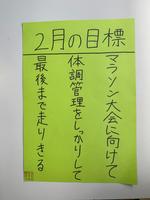 2月の目標
マラソン大会に向けて
体調管理をしっかりして
最後まで走りきる